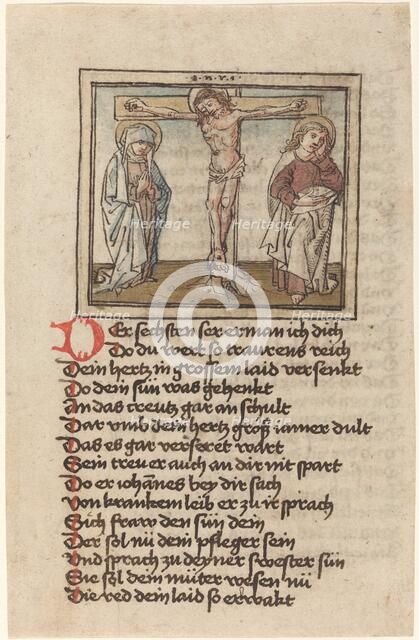 · I · N · R · I ·
Der sechsten ser erman ich dich
Do du wert so traurens reich
Dein hertz in grossem laid versenkt
Do dein sün was gehenkt
An das creutz gar an schult
Dar vmb dein hertz groß iamer dult
Das es gar verseret wart
Sein treu er auch an dir nit spart
Do er iohānes bey dir sach
Von krankem leib er zu ir sprach
Sich fraw den sün dein
Der sol nü dein pfleger sein
Vnd sprach zu deyner swester sün
Sie sol dein müter wesen nü
Die red dein laid so erwakt
Heritage
Heritage
Heritage
Heritage
Heritage
Heritage